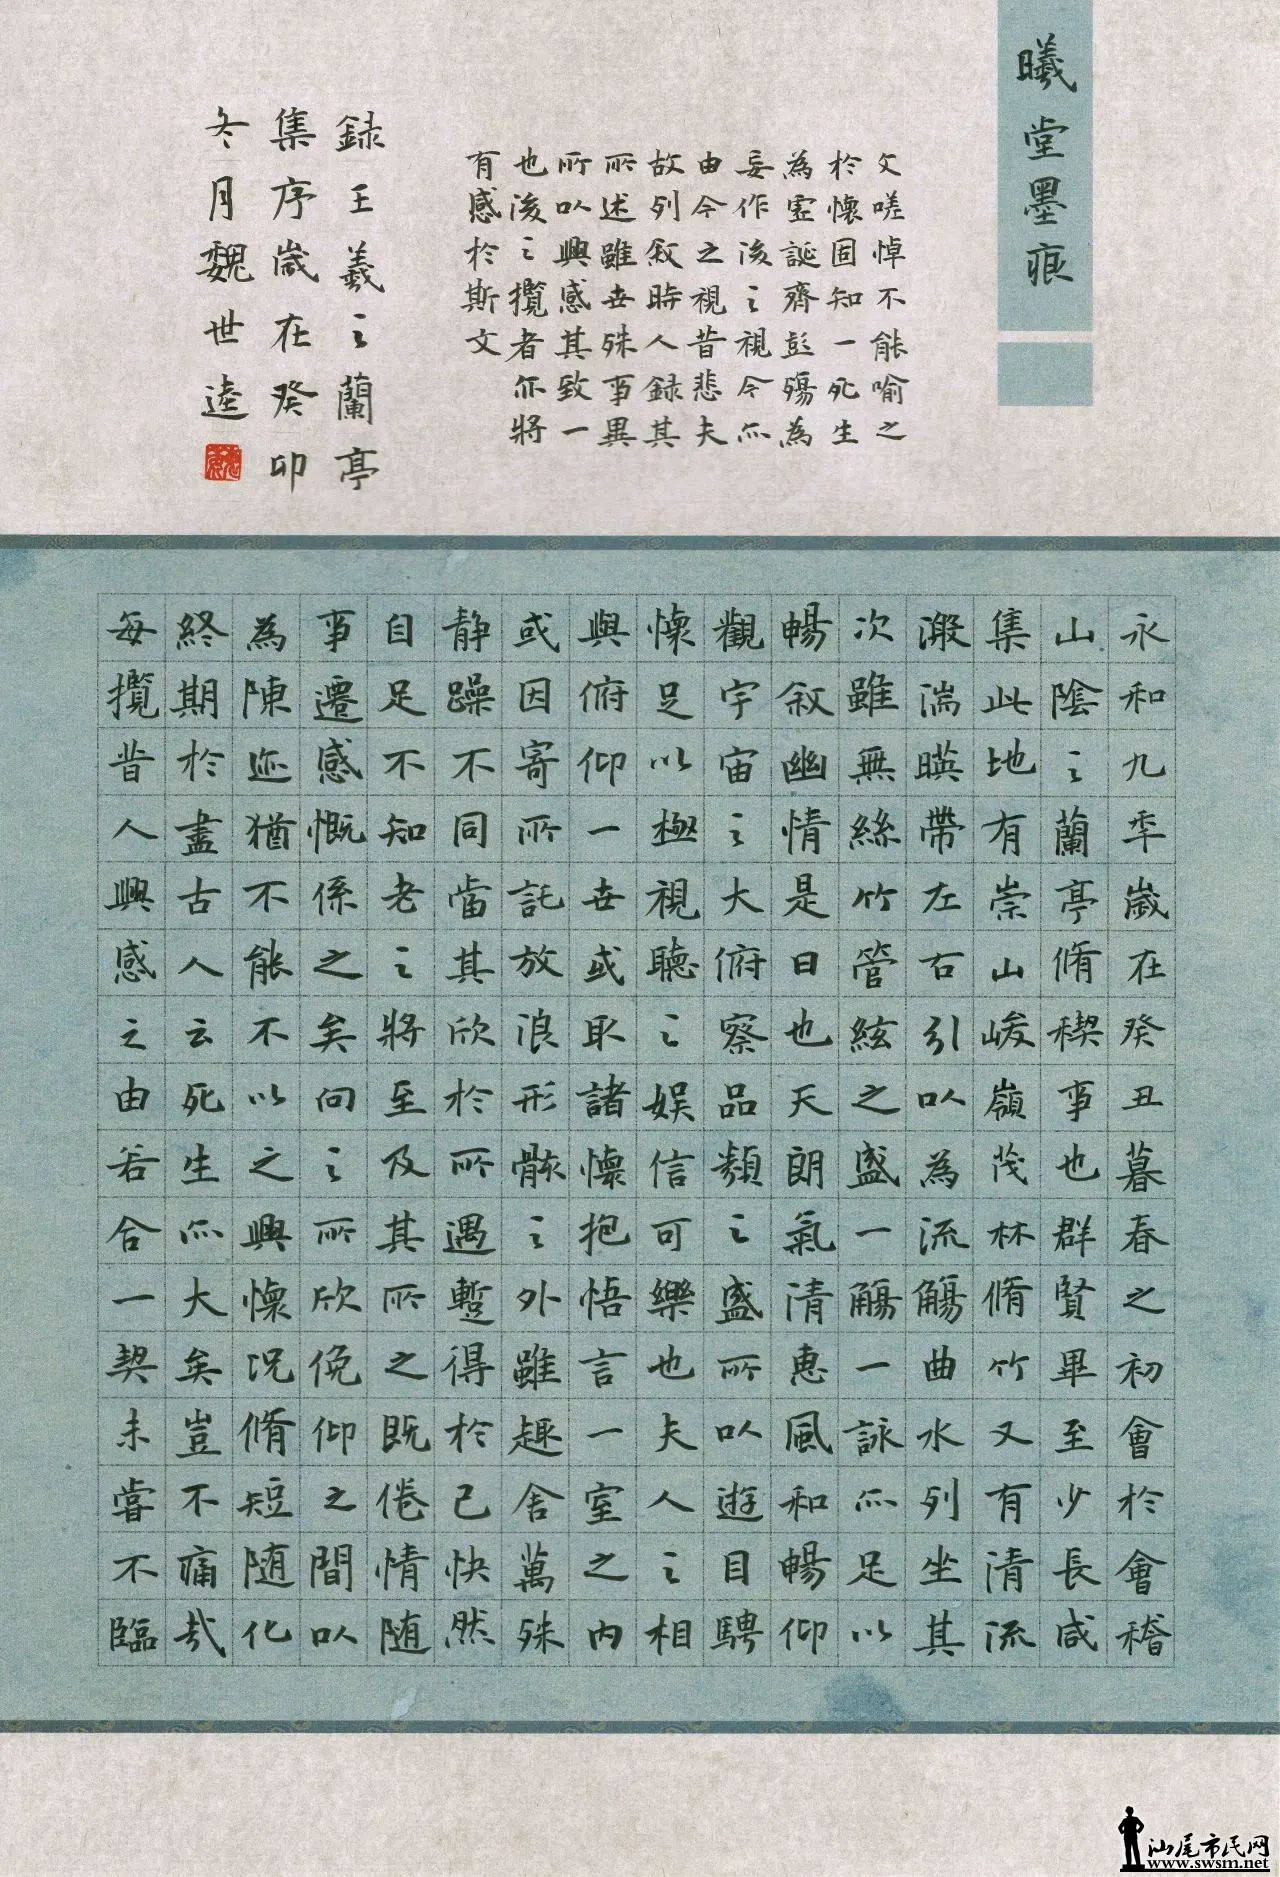 曦堂墨痕
永和九年歲在癸丑暮春之初會於會稽
山陰之蘭亭脩稧事也群賢畢至少長咸
集此地有崇山峻嶺茂林脩竹又有清流
激湍暎帶左右引以為流觴曲水列坐其
次雖無絲竹管絃之盛一觴一詠亦足以
暢叙幽情是日也天朗氣清惠風和暢仰
觀宇宙之大俯察品類之盛所以遊目騁
懷足以極視聽之娛信可樂也夫人之相
與俯仰一世或取諸懷抱悟言一室之內
或因寄所託放浪形骸之外雖趣舍萬殊
静躁不同當其欣於所遇暫得於己快然
自足不知老之將至及其所之既倦情随
事遷感慨係之矣向之所欣俛仰之間以
為陳迹猶不能不以之興懷況脩短随化
終期於盡古人云死生亦大矣豈不痛哉
每攬昔人興感之由若合一契未嘗不臨
文嗟悼不能喻之
於懷固知一死生
為虛誕齊彭殤為
妄作後之視今亦
由今之視昔悲夫
故列叙時人録其
所述雖世殊事異
所以興感其致一
也後之攬者亦將
有感於斯文
録王羲之蘭亭
集序歲在癸卯
冬月魏世逵
汕尾市民网
www.swsm.net